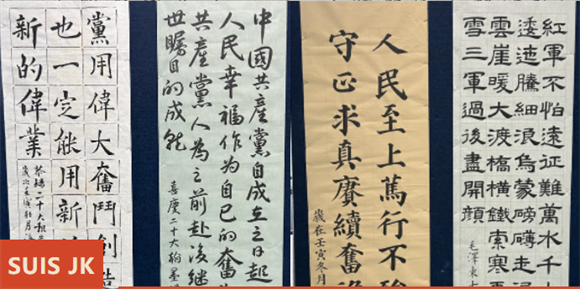 黨用偉大奮鬥創造
也一定能用新
新的偉業
二十大
中國共產黨自成立之日起
人民幸福作為自己的奮
共產黨人為之前赴後繼
世矚目的成就
喜慶二十大翰墨
人民至上篤行不
守正求真賡續奮
歲在壬寅冬月
紅軍不怕遠征難萬水千
逶迤騰細浪烏蒙磅礴走
雲崖暖大渡橋橫鐵索寒
雪三軍過後盡開顏
毛澤東七
SUIS JK